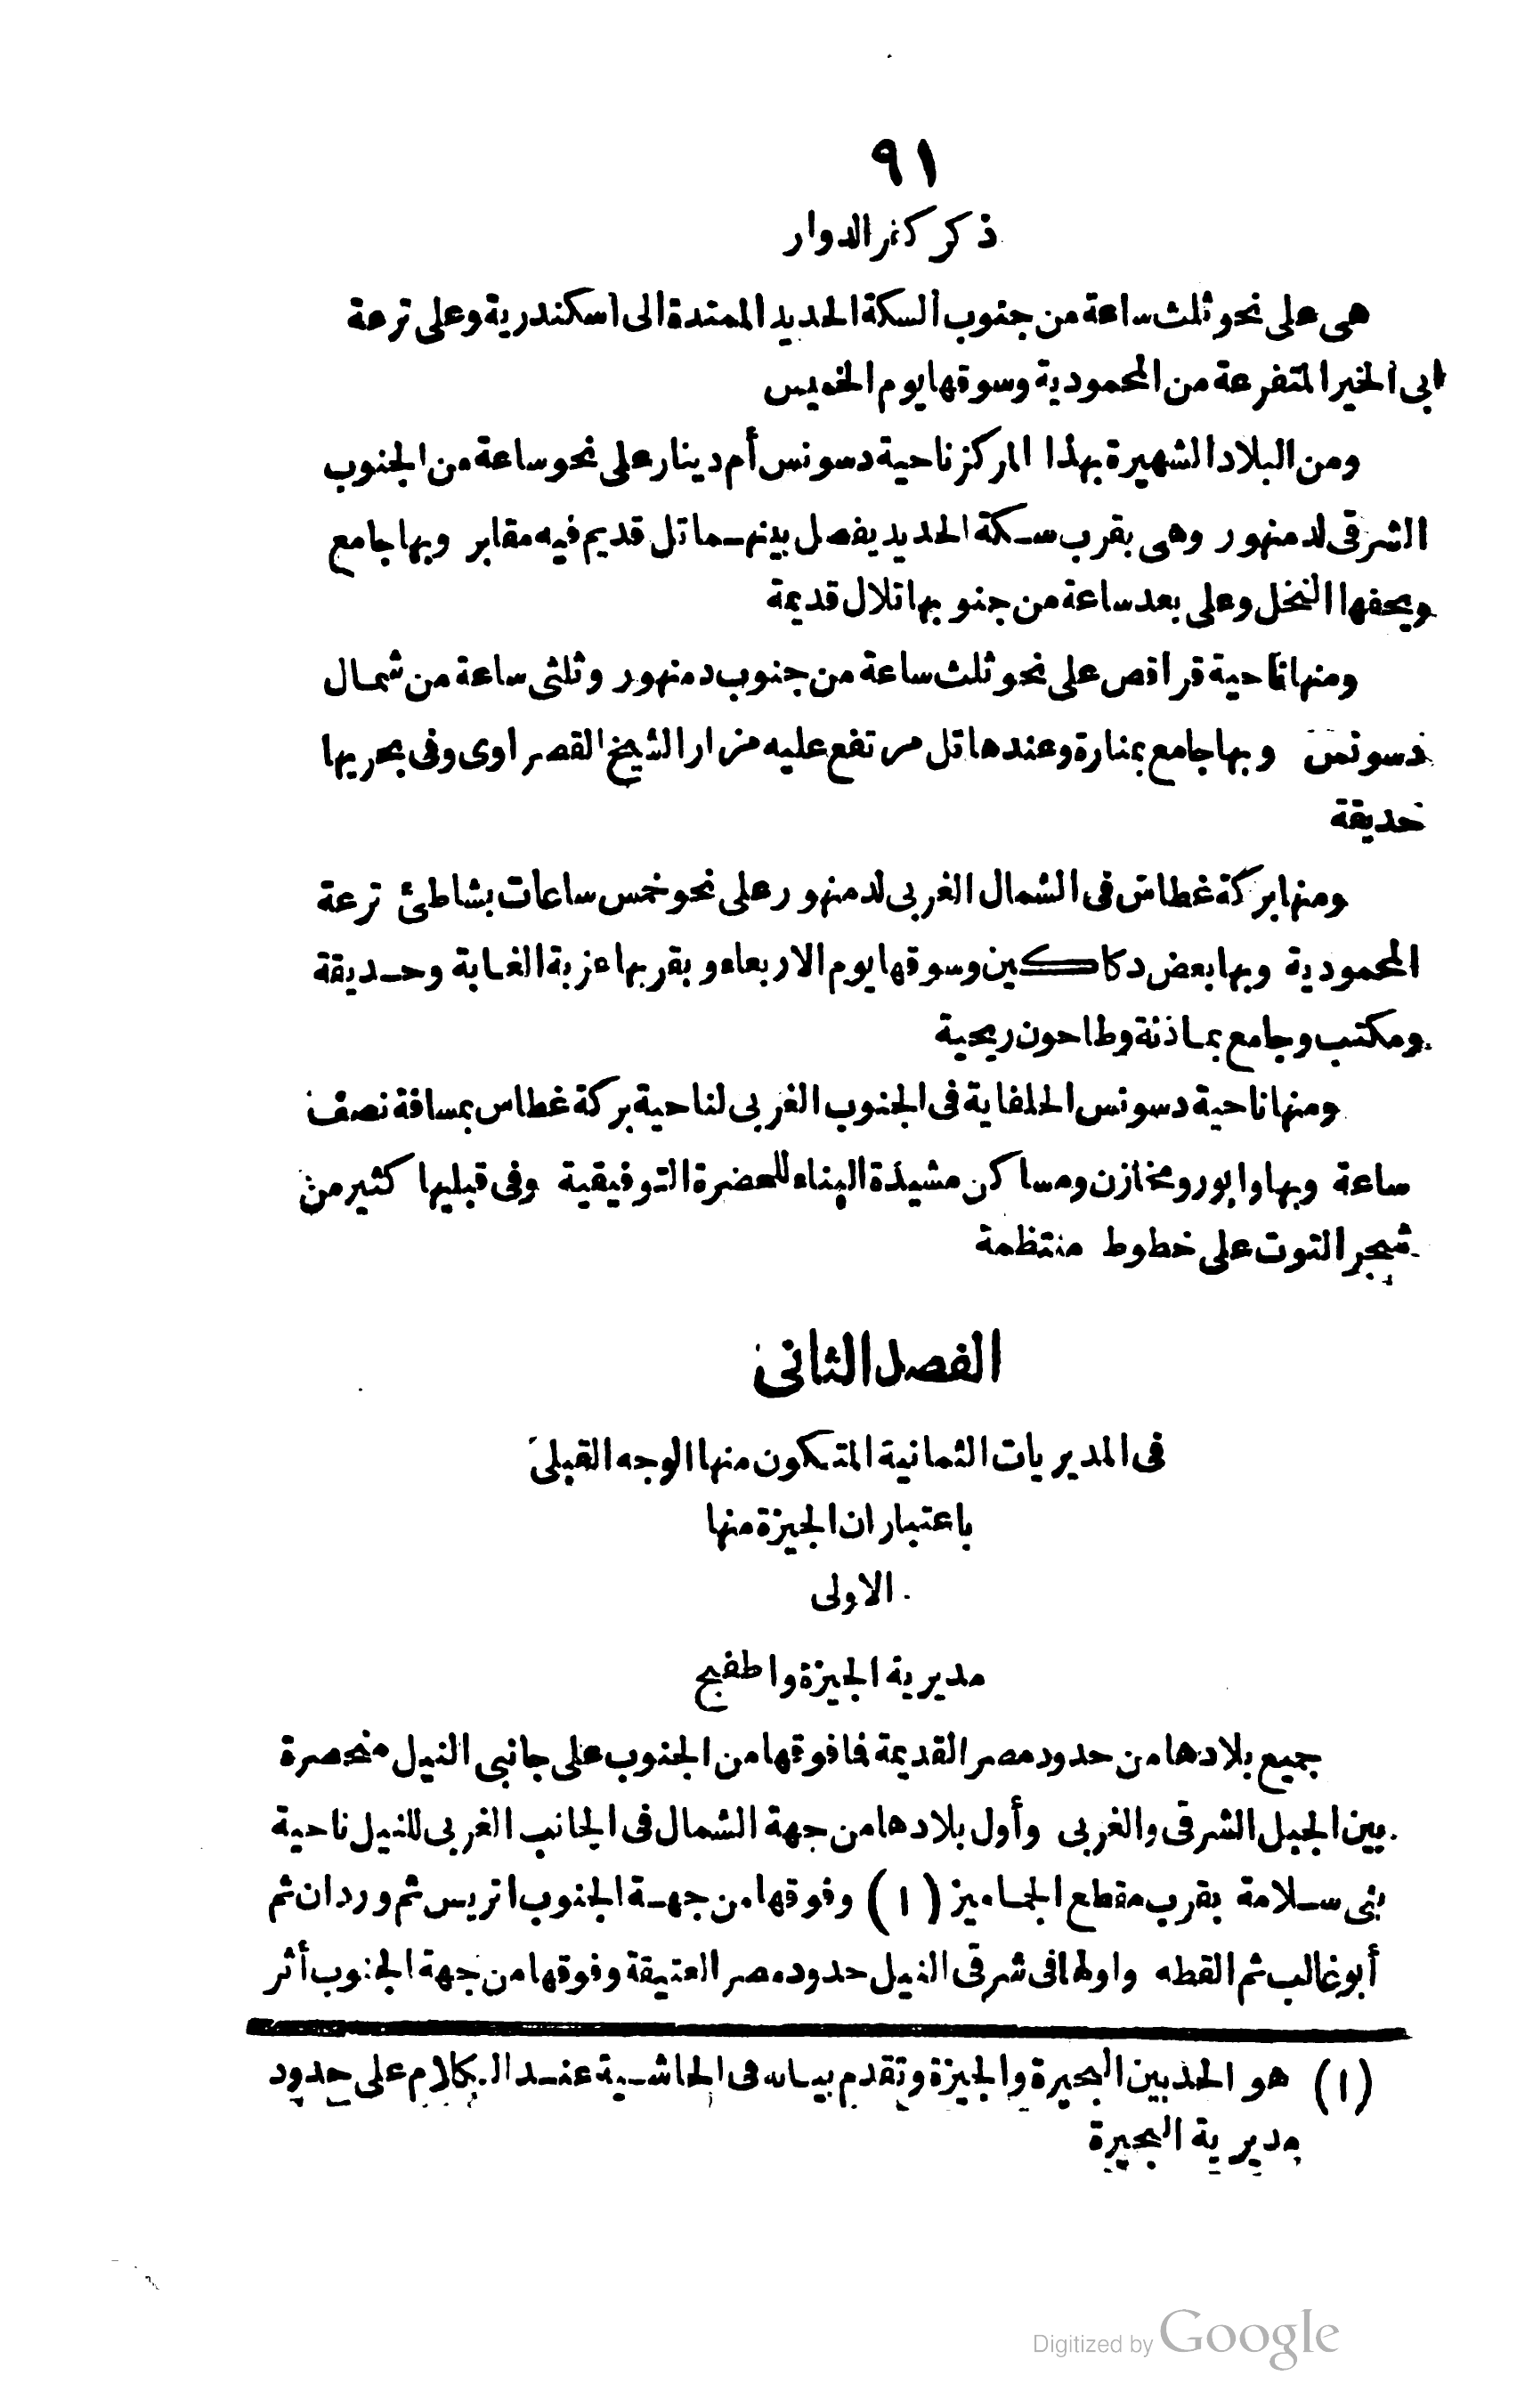 ٩١
ذكر كفر الدوار
هى على نحو ثلث ساعة من جنوب السكة الحديد الممتدة الى اسكندرية وعلى ترعة
ابى الخير المتفرعة من المحمودية وسوقها يوم الخميس
ومن البلاد الشهيرة بهذا المركز ناحية دسونس أم دينار على نحو ساعة من الجنوب
الشرقى لدمنهور وهى بقرب سكة الحديد يفصل بينهما تل قديم فيه مقابر وبها جامع
ويحفها النخل وعلى بعد ساعة من جنوبها تلال قديمة
ومنها ناحية قراقص على نحو ثلث ساعة من جنوب دمنهور وثلثى ساعة من شمال
دسونس وبها جامع بمنارة وعندها تل مرتفع عليه مزار الشيخ القصراوى وفى بحريها
حديقة
ومنها بركة غطاس فى الشمال الغربى لدمنهور على نحو خمس ساعات بشاطئ ترعة
المحمودية وبها بعض دكاكين وسوقها يوم الاربعاء وبقربها عزبة الغابة وحديقة
ومكتب وجامع بماذنة وطاحون ريحية
ومنها ناحية دسونس الحلفاية فى الجنوب الغربى لناحية بركة غطاس بمسافة نصف
ساعة وبها وابور ومخازن ومساكن مشيدة البناء للحضرة التوفيقية وفى قبليها كثير من
شجر التوت على خطوط منتظمة
الفصل الثانى
فى المديريات الثمانية المتكون منها الوجه القبلى
باعتبار ان الجيزة منها
الاولى
مديرية الجيزة واطفيح
جميع بلادها من حدود مصر القديمة فما فوقها من الجنوب على جانبى النيل منحصرة
بين الجبل الشرقى والغربى وأول بلادها من جهة الشمال فى الجانب الغربى للنيل ناحية
بنى سلامة بقرب مقطع الجماميز (١) وفوقها من جهة الجنوب اتريس ثم وردان ثم
أبو غالب ثم القطه واولها فى شرقى النيل حدود مصر العتيقة وفوقها من جهة الجنوب أثر
(١) هو الحد بين البحيرة والجيزة وتقدم بيانه فى الحاشية عند الكلام على حدود
مديرية البحيرة
Digitized by Google